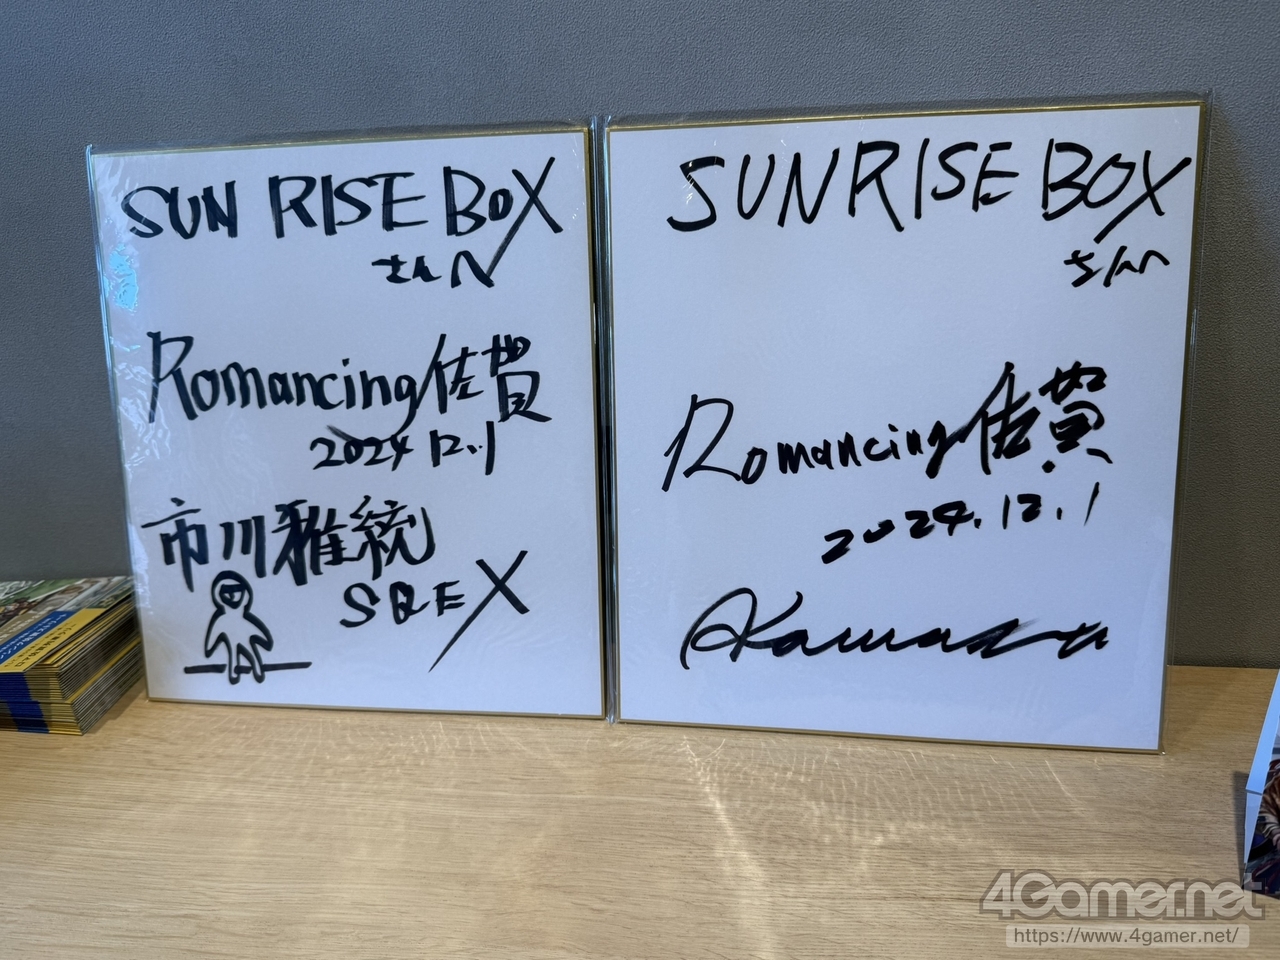 SUN RISE BOX
さんへ
Romancing佐賀
2024 12.1
市川雅統
SQEX
SUNRISE BOX
さんへ
Romancing佐賀
2024.12.1
AKawazu
4Gamer.net
https://www.4gamer.net/